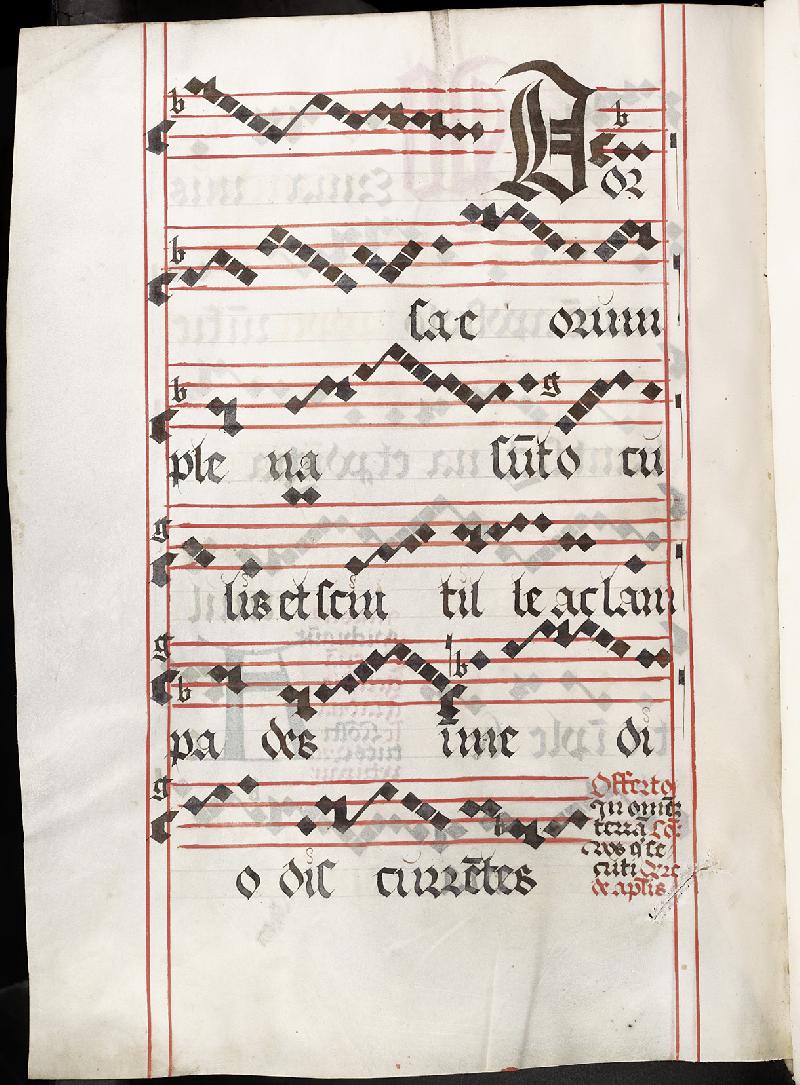 Dor
sac orum
ple na sūt o cu
lis et scin til le ac lam
pa des ime di
o dis currētes
Offerto
In omēz
terrā Cō
vos q̄ se
cuti
de aplis